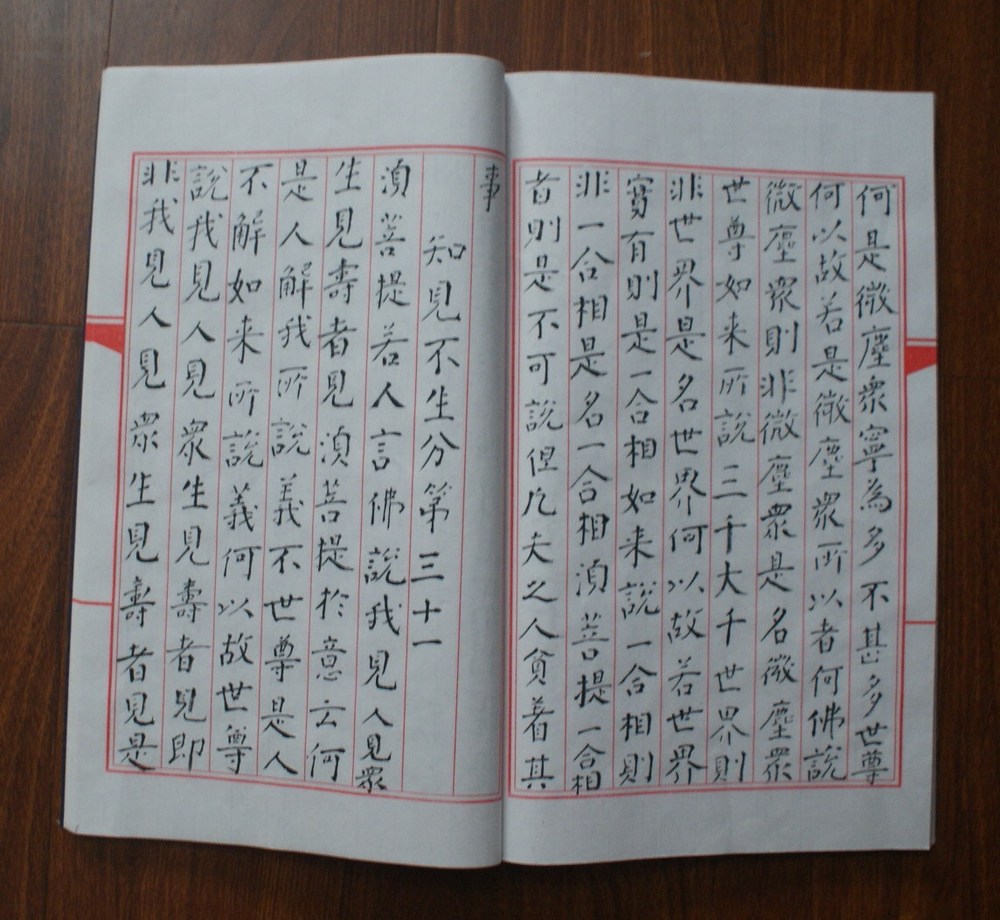 何是微塵衆寧為多不甚多世尊
何以故若是微塵衆所以者何佛說
微塵衆則非微塵衆是名微塵衆
世尊如来所說三千大千世界則
非世界是名世界何以故若世界
實有則是一合相如来說一合相則
非一合相是名一合相湏菩提一合相
者則是不可說但凡夫之人貪着其
事
知見不生分第三十一
湏菩提若人言佛說我見人見衆
生見壽者見湏菩提於意云何
是人解我所說義不世尊是人
不解如来所說義何以故世尊
說我見人見衆生見壽者見即
非我見人見衆生見壽者見是